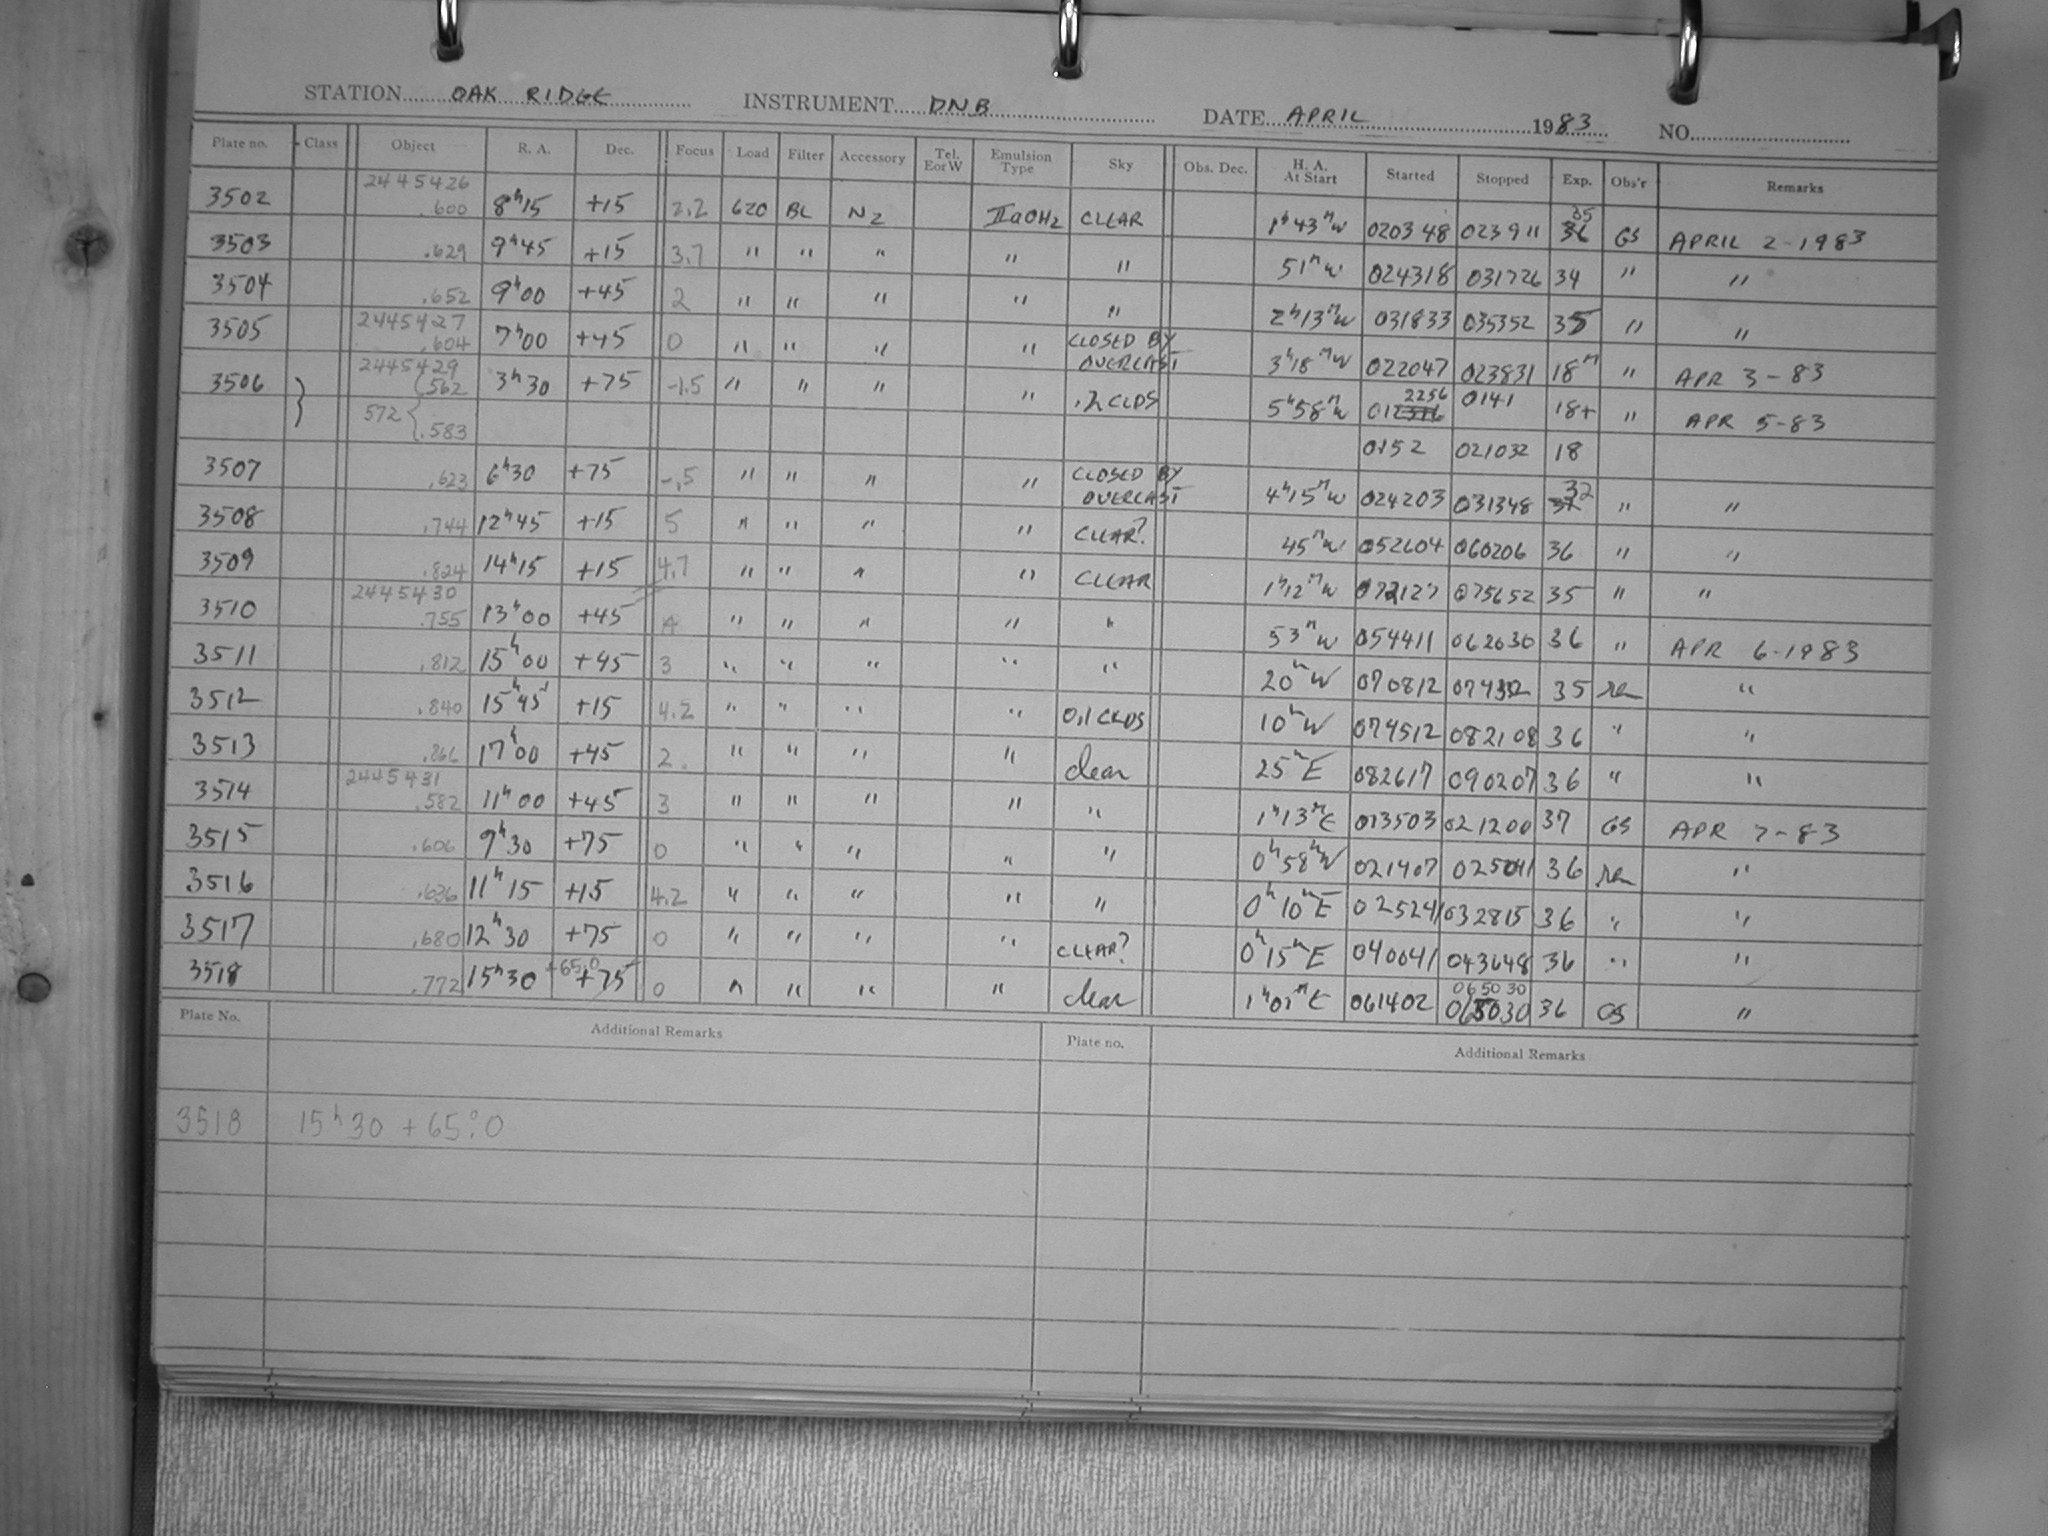 STATION OAK RIDGE INSTRUMENT DNB DATE APRIL 1983 NO.
Plate no. Class Object R. A. Dec. Focus Load Filter Accessory Tel. E or W Emulsion Type Sky Obs. Dec. H. A. At Start Started Stopped Exp. Obs'r Remarks
2445426
3502 .600 8h15 +15 2.2 620 BL N2 IIaOH2 CLEAR 1h43mW 020348 023911 35 GS APRIL 2-1983
3503 .629 9h45 +15 3.7 " " " " " 51mW 024318 031726 34 " "
3504 .652 9h00 +45 2 " " " " " 2h13mW 031833 035352 35 " "
2445427
3505 .604 7h00 +45 0 " " " " CLOSED BY OVERCAST 3h18mW 022047 023831 18m " APR 3-83
2445429
3506 .562 3h30 +75 -1.5 " " " " .2 CLDS 5h58mW 012256 0141 18+ " APR 5-83
572 { .583 0152 021032 18
3507 .623 6h30 +75 -.5 " " " " CLOSED BY OVERCAST 4h15mW 024203 031348 32 " "
3508 .744 12h45 +15 5 " " " " CLEAR? 45mW 052604 060206 36 " "
3509 .824 14h15 +15 4.7 " " " " CLEAR 1h12mW 072127 075652 35 " "
2445430
3510 .755 13h00 +45 4 " " " " " 53mW 054411 062030 36 " APR 6-1983
3511 .812 15h00 +45 3 " " " " " 20mW 070812 35 "
3512 .840 15h45 +15 4.2 " " " " 0.1 CLDS 10mW 074512 082108 36 " "
3513 .866 17h00 +45 2. " " " " clear 25mE 082617 090207 36 " "
2445431
3514 .582 11h00 +45 3 " " " " " 1h13mE 013503 021200 37 GS APR 7-83
3515 .606 9h30 +75 0 " " " " " 0h58mW 021407 025041 36 "
3516 .636 11h15 +15 4.2 " " " " " 0h10mE 025241 032815 36 " "
3517 .680 12h30 +75 0 " " " " CLEAR? 0h15mE 040041 043648 36 " "
3518 .772 15h30 +65.0 +75 0 " " " " clear 1h01mE 061402 065030 065030 36 GS "
Plate No. Additional Remarks Plate no. Additional Remarks
3518 15h30 +65°.0